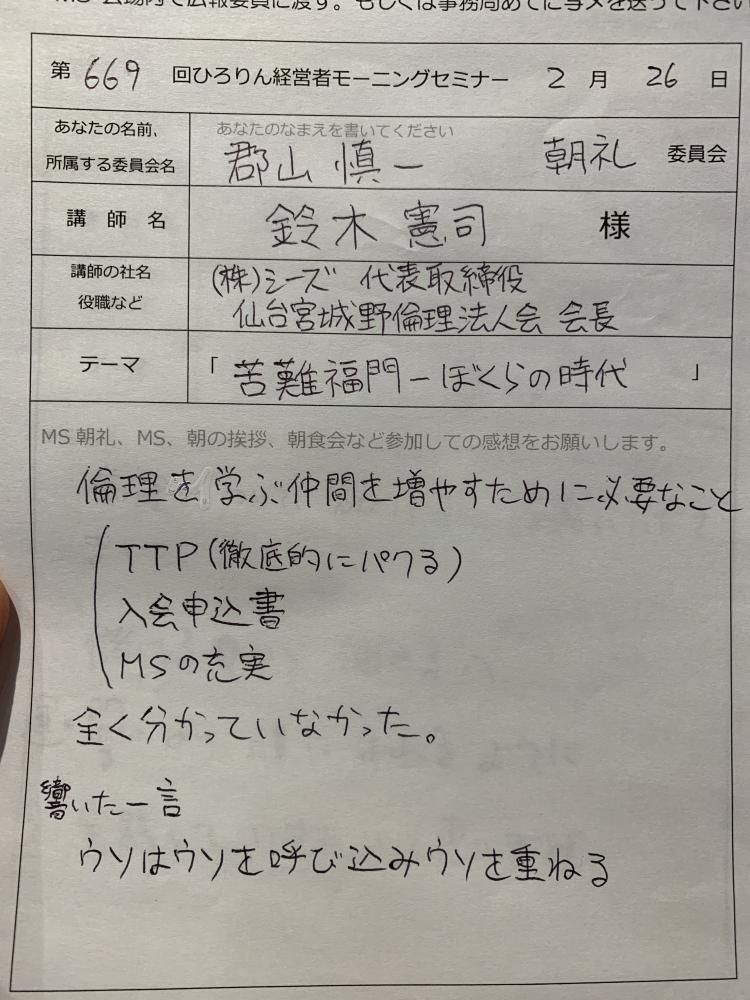 MS 会場内で広報委員に渡す。もしくは事務局あてに写メを送って下さい
第 669 回ひろりん経営者モーニングセミナー 2 月 26 日
あなたの名前、
所属する委員会名
あなたのなまえを書いてください
郡山 慎一 朝礼 委員会
講 師 名 鈴木 憲司 様
講師の社名
役職など
(株)シーズ 代表取締役
仙台宮城野倫理法人会 会長
テーマ 「 苦難福門ーぼくらの時代 」
MS 朝礼、MS、朝の挨拶、朝食会など参加しての感想をお願いします。
倫理を学ぶ仲間を増やすために必要なこと
TTP(徹底的にパクる)
入会申込書
MSの充実
全く分かっていなかった。
響いた一言
ウソはウソを呼び込みウソを重ねる